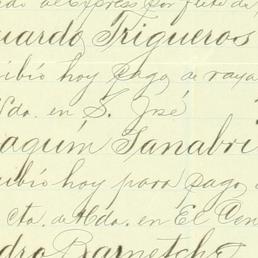 do al Express por flete de
uardo Trigueros
cibió hoy pago de raya
Hda. en S. José
aquím Sanabri
cibió hoy para pago
cta. de Hda. en El Cen
dro Barnetche